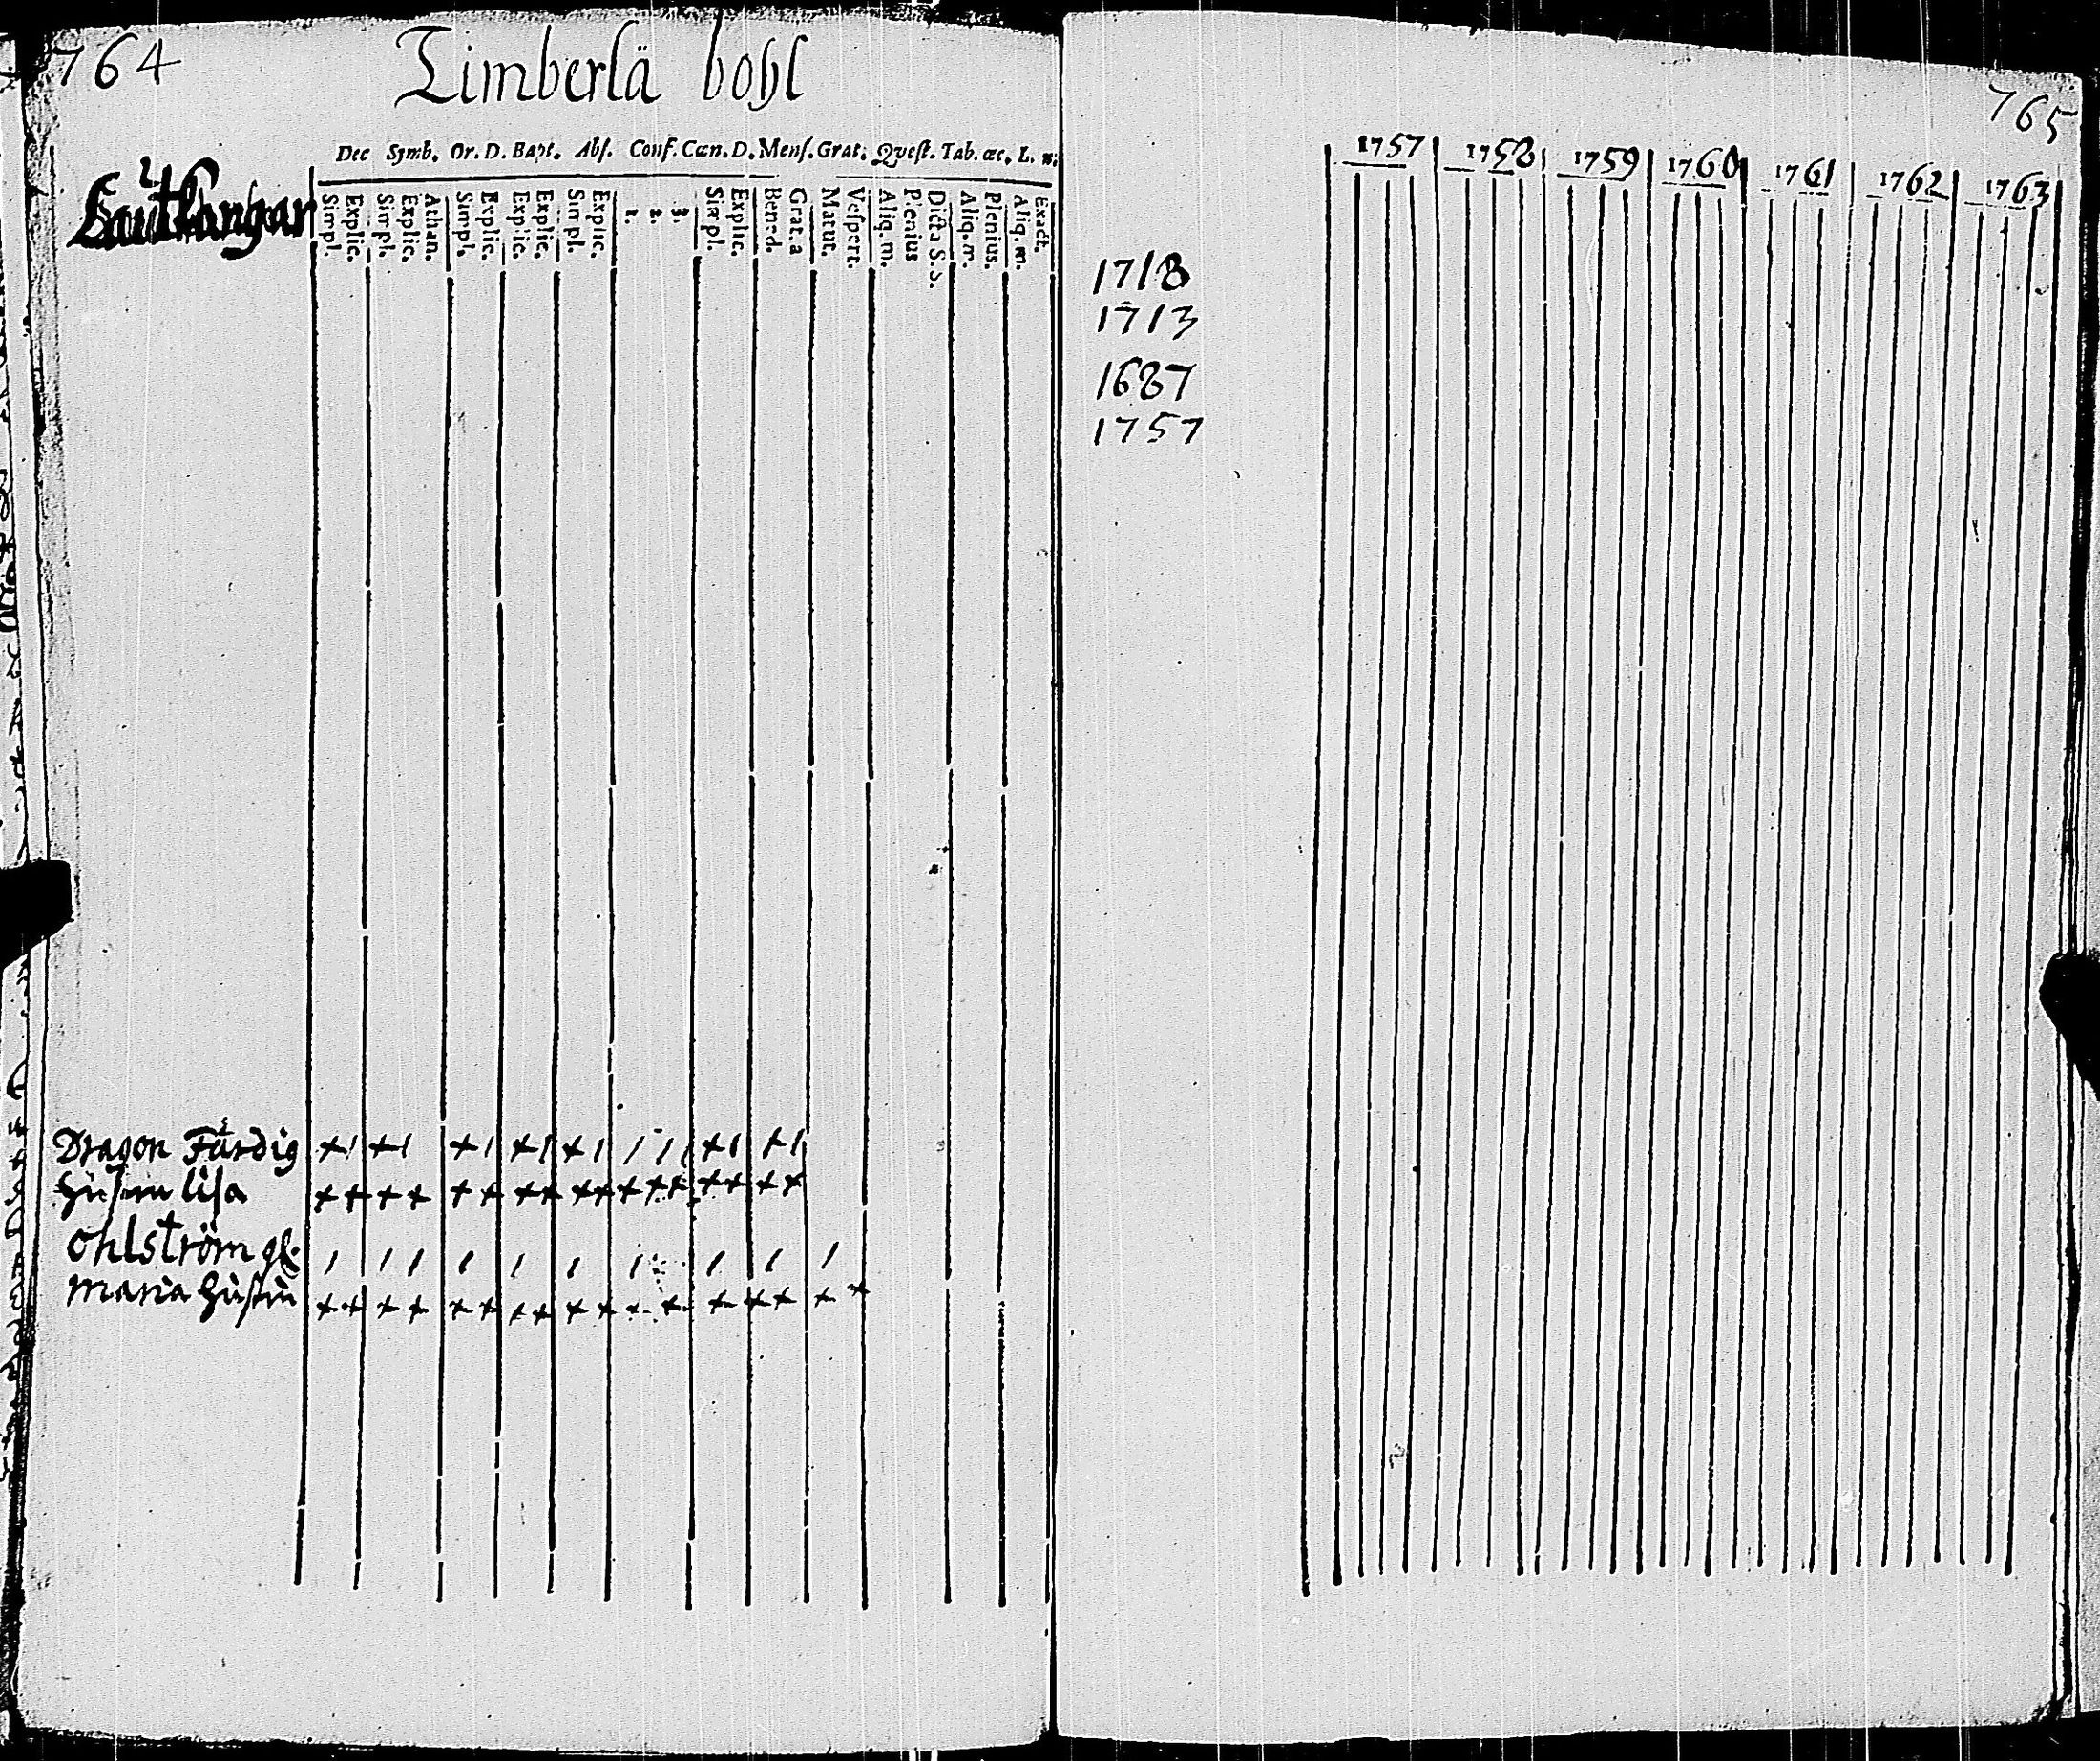 764
Timberlä bohl
Dec Symb. Or. D. Bapt. Abs. Conf. Cœn. D. Mens. Grat. Qvest. Tab. œc. L. n.
Simpl. Explic. Simpl. Explic. Athan. Simpl. Explic. Explic. Explic. Simpl. Explic. 1. 2. 3. Simpl. Explic. Bened. Grat.a Matut. Vespert. Aliq. m. Plenius Dicta S. S. Aliq. m. Plenius. Aliq. m. Exact.
Dragon Färdig
Hustru Lisa
Ohlström gl.
Maria Hustru
765
1757 1758 1759 1760 1761 1762 1763
1718
1713
1687
1757